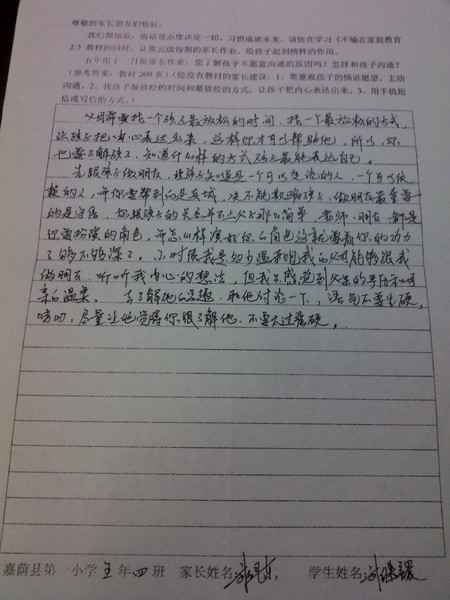 尊敬的家长朋友们您好:
我们都知道,俗话说态度决定一切,习惯成就未来。请您在学习《不输在家庭教育
上》教材的同时,认真完成每期的家长作业,给孩子起到榜样的作用。
五年组十一月份家长作业:您了解孩子不愿意沟通的原因吗?怎样和孩子沟通?
(参考答案:教材209页)(给没有教材的家长建议:1、要重视孩子的倾诉愿望,主动
沟通。2、找孩子最放松的时间和最放松的方式,让孩子把内心表达出来。3、用手机短
信或写信的方式。)
父母亲要找一个孩子最放松的时间,找一个最放松的方式,
让孩子把内心表达出来,这样你才可以帮助他,所以,你
也要了解孩子,知道什么样的方式孩子最能表达自己。
先跟孩子做朋友,让孩子知道是一个可以想说的人,一个可以依
赖的人,而你要帮到的是真诚,决不能欺骗孩子,做朋友最重要
的是守信,你跟孩子的关系并不止父子那么简单,老师、朋友都是
你要扮演的角色,而怎么样演好你的角色这就要看你的功力
了够不够深了。小时候我是多少温希望我的父母能够跟我
做朋友,听听我内心的想法,但我只感觉到父亲的严厉和母
亲的温柔。去了解他的兴趣,和他讨论一下,语气不要生硬,
唠叨,尽量让他觉得你很了解他,不要太过强硬。
嘉荫县第一小学五年四班 家长姓名: 学生姓名: